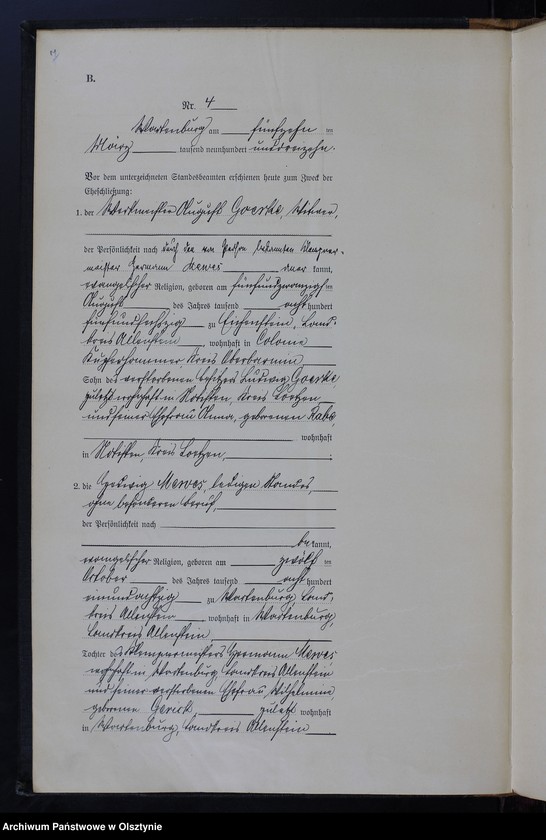 B.
Nr. 4
Wartenburg am fünfzehn im
März tausend neunhundert und
Vor dem unterzeichneten Standesbeamten erschienen heute zum Zweck der
Eheschließung:
1. der Werkmeister August Goerke, Witwer,
der Persönlichkeit nach durch den von Person bekannten Klempner-
meister Hermann Mewes anerkannt,
evangelischer Religion, geboren am fünfundzwanzigsten im
August des Jahres tausend acht hundert
fünfundsechzig zu Land-
kreis Allenstein, wohnhaft in Colonie
Kupferhammer Kreis Oberbarnim
Sohn des verstorbenen Besitzers Ludwig Goerke
zuletzt wohnhaft in Kreis Loetzen
und seiner Ehefrau Anna, geborenen Rabe,
wohnhaft
in Kreis Loetzen,
2. die Hedwig Mewes, ledigen Standes,
ohne besonderen Beruf,
der Persönlichkeit nach
bekannt,
evangelischer Religion, geboren am zwölf im
October des Jahres tausend acht hundert
einundachtzig zu Wartenburg, Land-
kreis Allenstein wohnhaft in Wartenburg,
Landkreis Allenstein
Tochter des Klempnermeisters Hermann Mewes
wohnhaft in Wartenburg, Landkreis Allenstein
und seiner verstorbenen Ehefrau Wilhelmine,
geborene zuletzt wohnhaft
in Wartenburg, Landkreis Allenstein
Archiwum Państwowe w Olsztynie